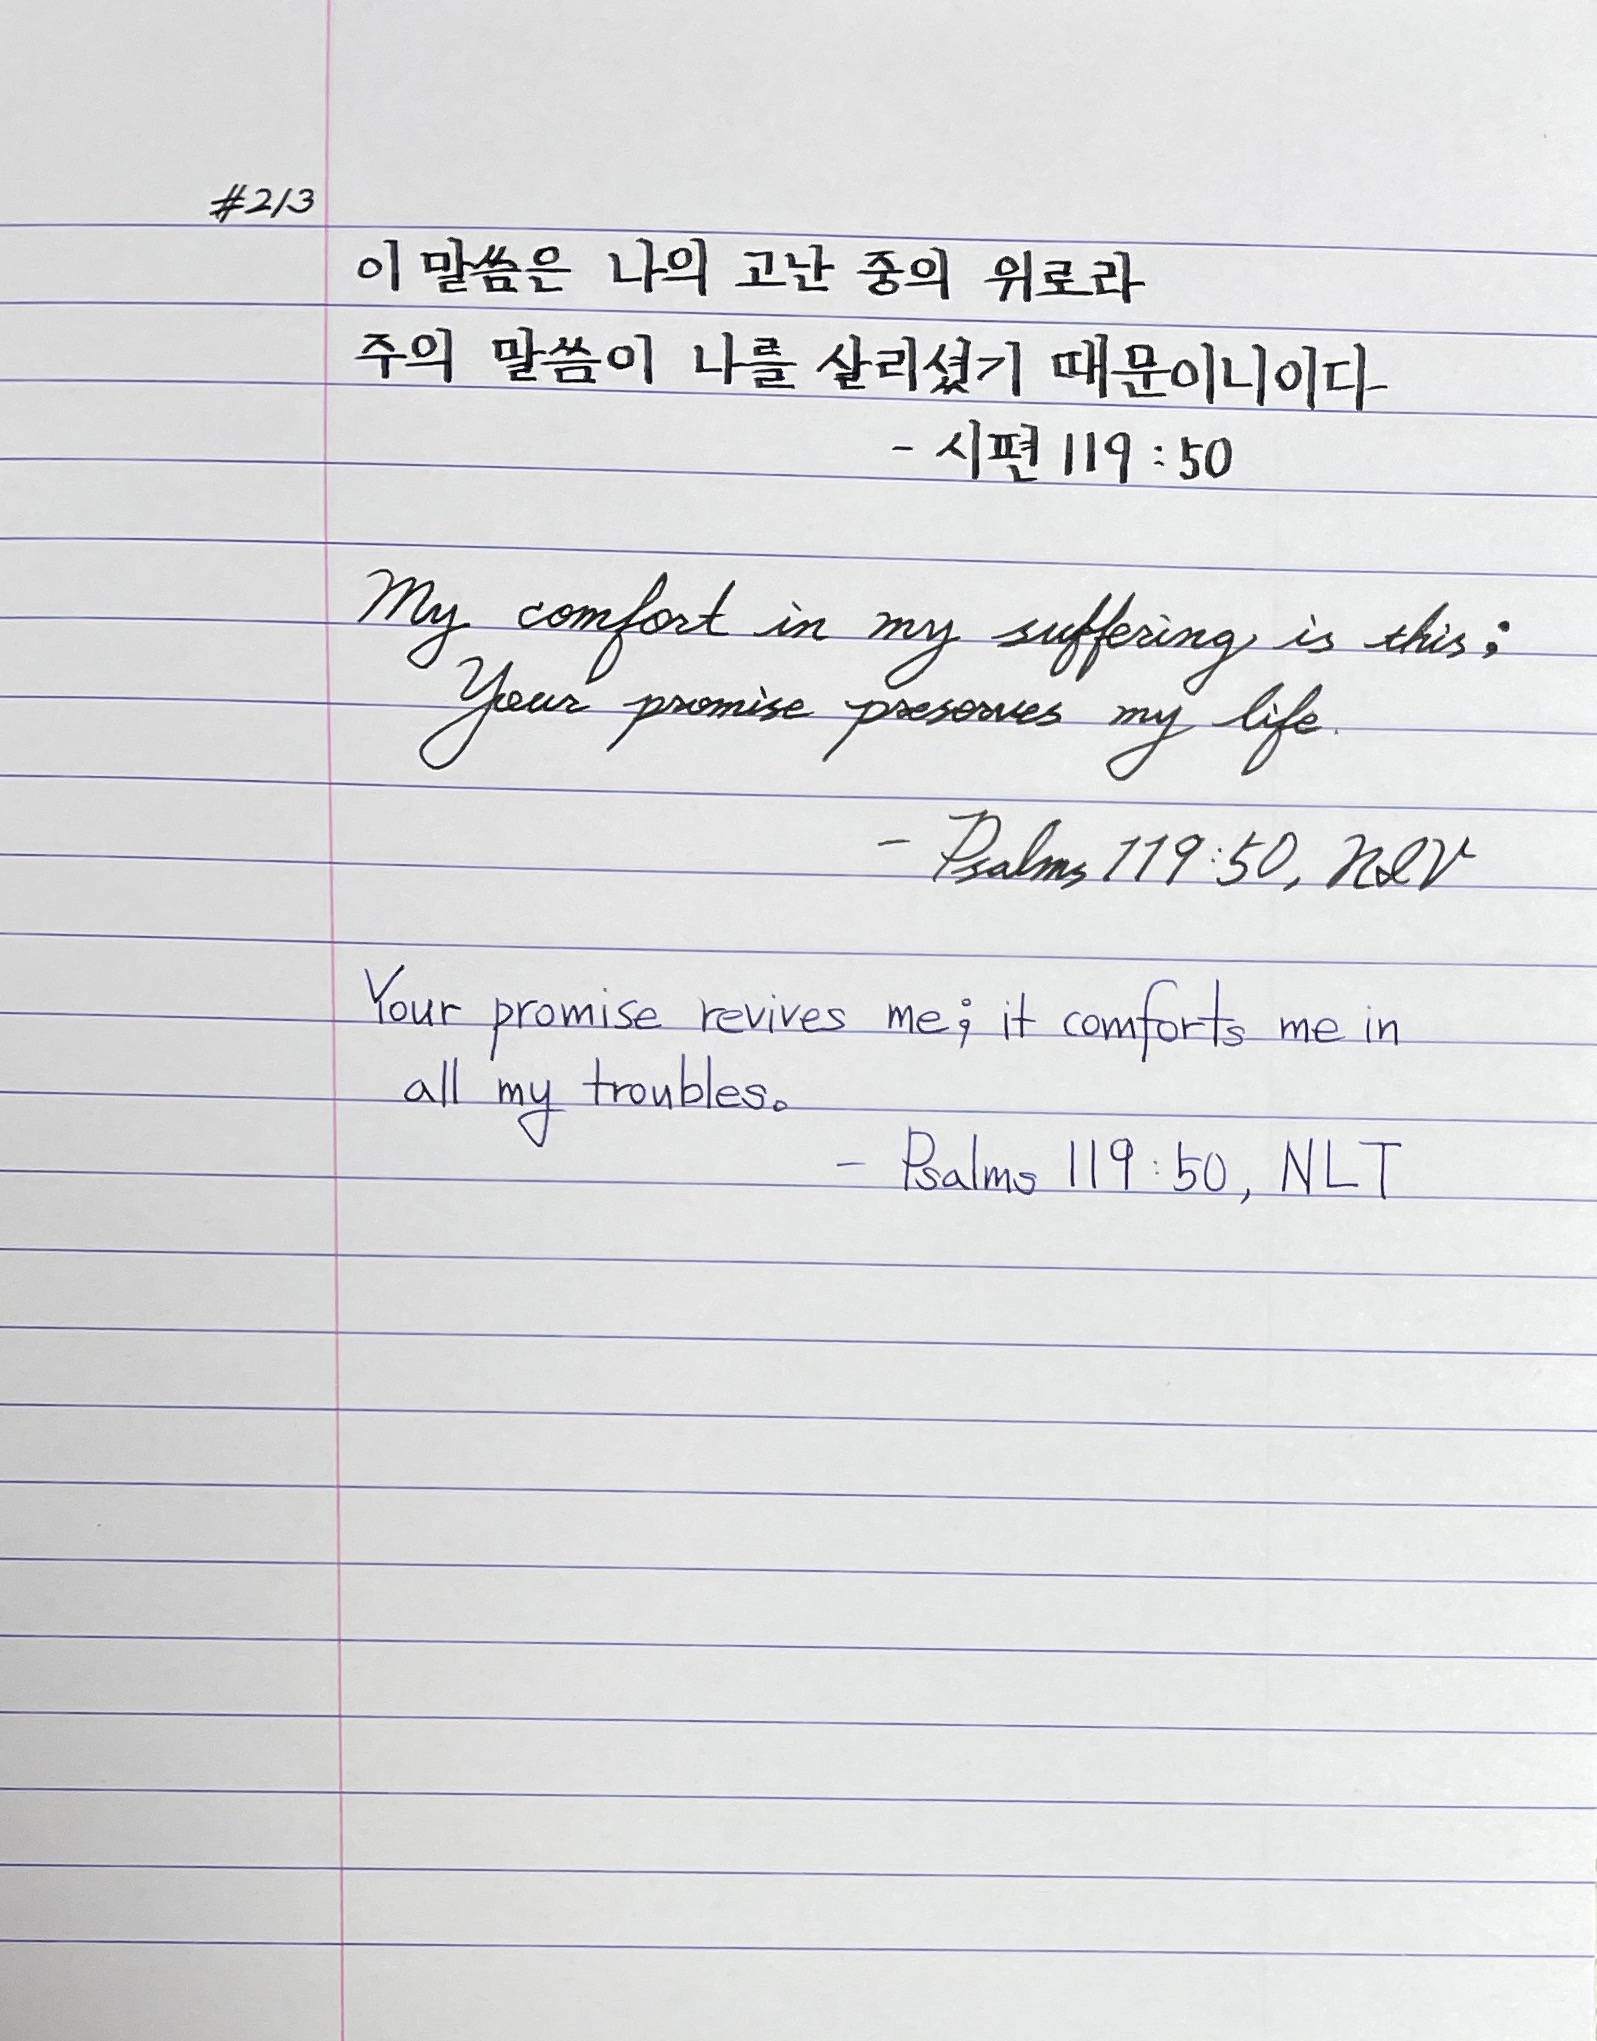 #213
이 말씀은 나의 고난 중의 위로라
주의 말씀이 나를 살리셨기 때문이니이다
- 시편 119:50
My comfort in my suffering is this;
Your promise preserves my life.
- Psalms 119:50, NIV
Your promise revives me; it comforts me in
all my troubles.
- Psalms 119:50, NLT